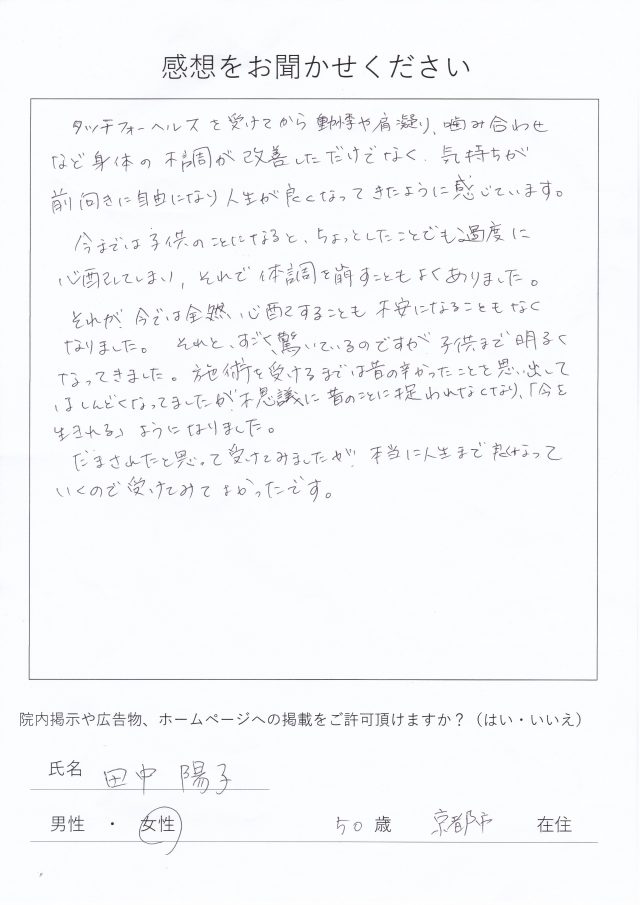 感想をお聞かせください
タッチフォーヘルスを受けてから動悸や肩凝り、噛み合わせ
など身体の不調が改善しただけでなく、気持ちが
前向きに自由になり人生が良くなってきたように感じています。
今までは子供のことになると、ちょっとしたことでも過度に
心配してしまい、それで体調を崩すこともよくありました。
それが今では全然心配することも不安になることもなく
なりました。それと、すごく驚いているのですが子供まで明るく
なってきました。施術を受けるまでは昔の辛かったことを思い出して
はしんどくなってましたが不思議に昔のことに捉われなくなり、「今を
生きれる」ようになりました。
だまされたと思って受けてみましたが、本当に人生まで変なって
いくので受けてみてよかったです。
院内掲示や広告物、ホームページへの掲載をご許可頂けますか？（はい・いいえ）
氏名 田中 陽子
男性 ・ 女性 50 歳 京都市 在住